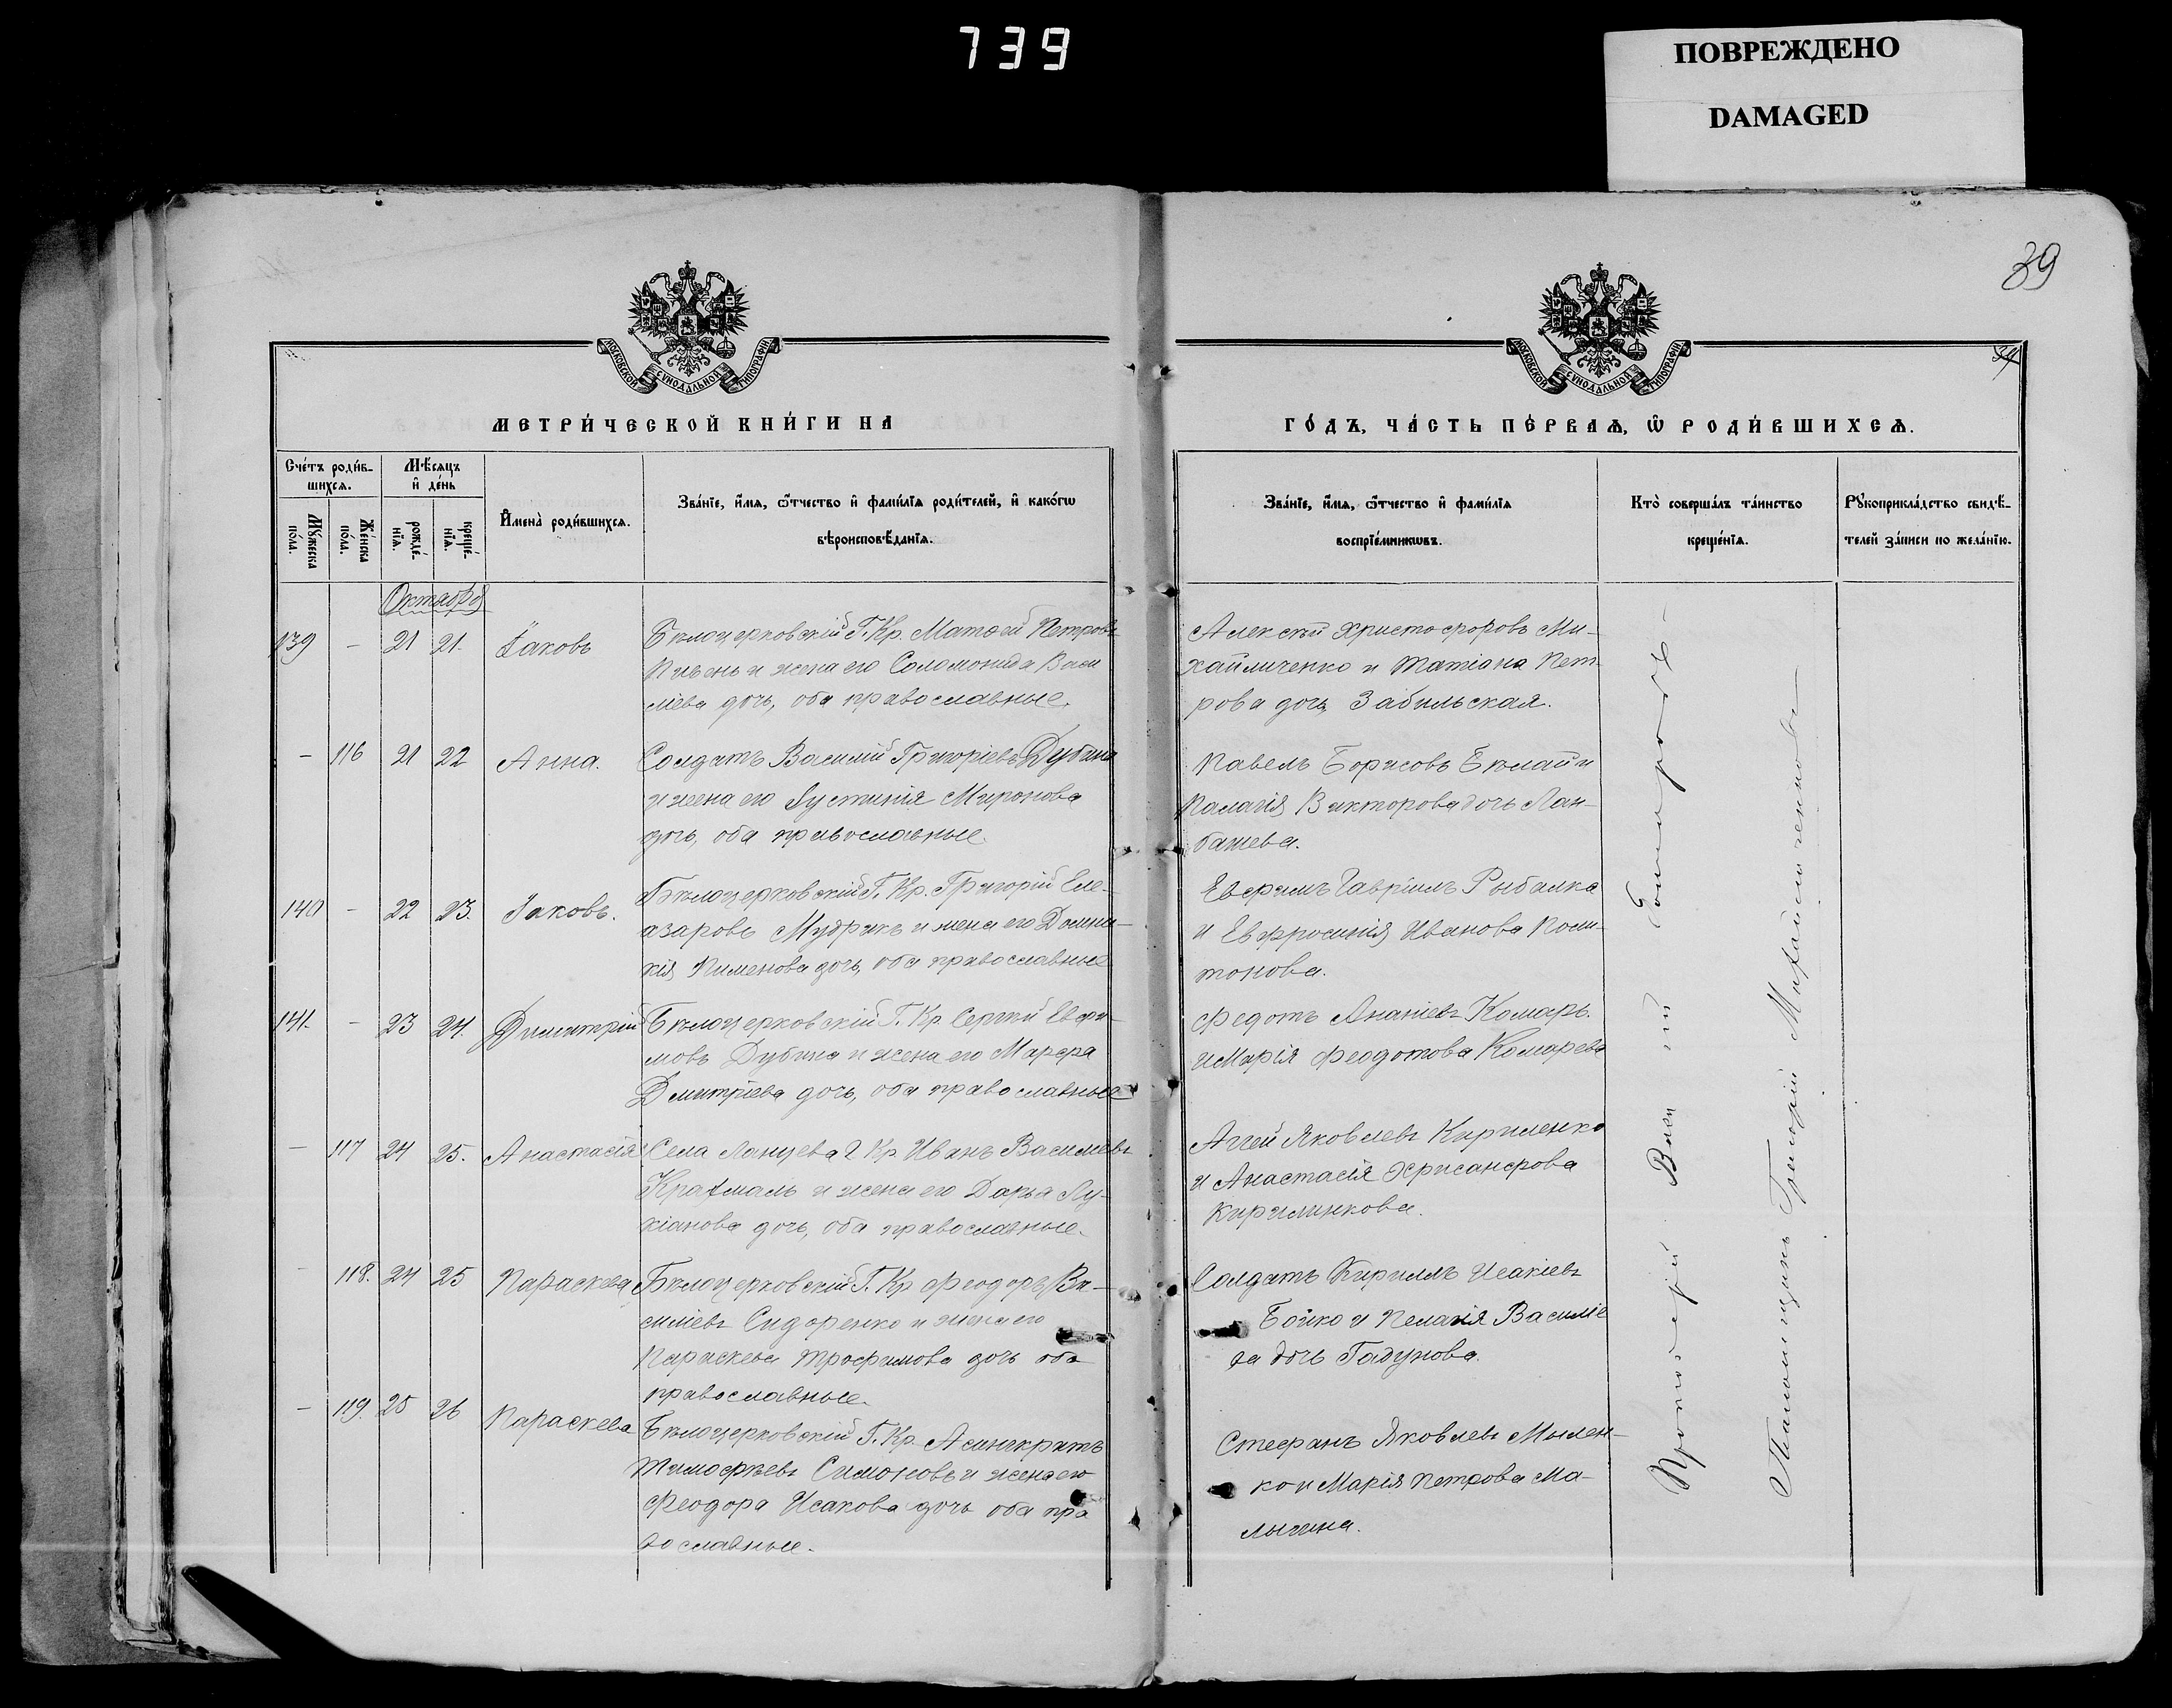 739
ПОВРЕЖДЕНО
DAMAGED
39
МОСКОВСКОЙ СУНОДАЛЬНОЙ ТИПОГРАФІИ
МОСКОВСКОЙ СУНОДАЛЬНОЙ ТИПОГРАФІИ
МЕТРИ́ЧЕСКОЙ КНИ́ГИ НА
ГО́ДЪ, ЧА́СТЬ ПЕ́РВАѦ, Ѡ РОДИ́ВШИХСѦ.
Сче́тъ роди́в-
шихсѧ.
Мꙋ́жеска
по́ла.
Же́нска
по́ла.
Мѣ́сѧцъ
и҆ де́нь
рожде́-
нїѧ.
креще́-
нїѧ.
И҆мена̀ роди́вшихсѧ.
Зва́нїе, и҆́мѧ, ѻ҆́тчество и҆ фами́лїѧ роди́телей, и҆ како́гѡ
вѣроисповѣ́данїѧ.
Зва́нїе, и҆́мѧ, ѻ҆́тчество и҆ фами́лїѧ
воспрїе́мникѡвъ.
Кто̀ соверша́лъ та́инство
креще́нїѧ.
Рꙋкоприкла́дство свидѣ́-
телей за́писи по жела́нїю.
Октября
139 - 21 21. Іаковъ
Бѣлоцерковскій Г. Кр. Матѳей Петровъ
Пивень и жена его Соломонида Васи
ліева дочь, оба православные.
Алексѣй Христофоровъ Ми-
хайличенко и Татіана Пет-
рова дочь Забильская.
- 116 21 22 Анна.
Солдатъ Василій Григоріевъ Дубина
и жена его Іустинія Миронова
дочь, оба православные.
Павелъ Борисовъ Бѣлай и
Палагія Викторова дочь Лан-
башева.
140 - 22 23. Іаковъ.
Бѣлоцерковскій Г. Кр. Григорій Еле-
азаровъ Мудрикъ и жена его Домни-
кія Пименова дочь, оба православные
Евфимъ Гавріилъ Рыбалка
и Евфросинія Иванова
141. - 23 24. Димитрій
Бѣлоцерковскій Г. Кр. Сергѣй Евфи-
мовъ Дубина и жена его Марфа
Дмитріева дочь, оба православные
Федотъ Ананіевъ Комарь.
и Марія Феодотова Комарева
- 117 24 25. Анастасія
Села Ланцева 2 Кр Иванъ Василіевъ
Крахмаль и жена его Дарья Лу-
кіанова дочь, оба православные.
Аггей Яковлевъ Кириленко
и Анастасія Хрисанфова
Кирилинкова.
- 118. 24 25 Параскева
Бѣлоцерковскій Г. Кр Феодоръ Ва-
силіевъ Сидоренко и жена его
Параскева Трофимова дочь оба
православные.
Солдатъ Кириллъ Исакіевъ
Бойко и Пелагія Василіе
ва дочь Гадунова.
- 119. 25 26 Параскева
Бѣлоцерковскій Г. Кр. Асинкритъ
Тимофѣевъ Симоновъ и жена его
Феодора Исакова дочь оба пра
вославные.
Стефанъ Яковлевъ Мылен-
ко и Марія Петрова Ма-
лыгина.
Протоіерей
Псаломщикъ Григорій Михайличенковъ